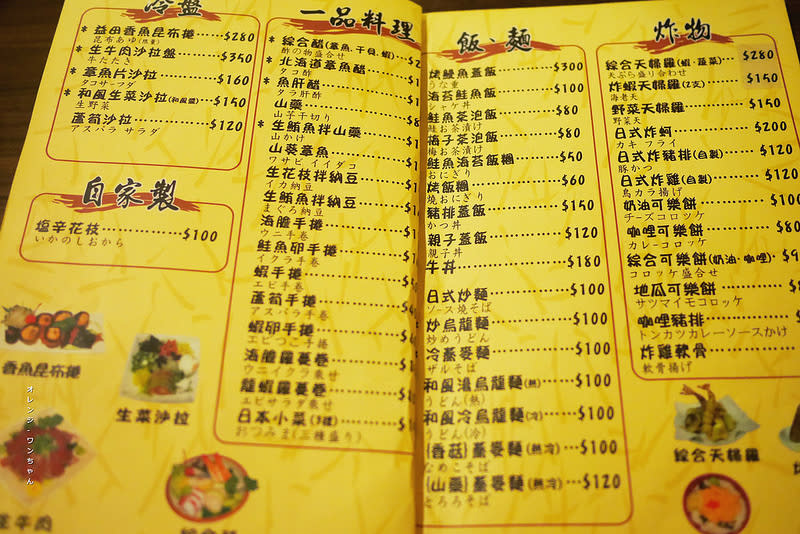 冷盤
*益田香魚昆布捲……$280
昆布あゆ
*生牛肉沙拉盤……$350
牛たたき
*章魚片沙拉……$160
タコサーフダ
*和風生菜沙拉(和風醬)…$150
生野菜
蘆筍沙拉……$120
アスパラ サラダ
自家製
塩辛花枝……$100
いかのしおから
香魚昆布捲
生菜沙拉
オレンジ・ワンちゃん
生牛肉
一品料理
*綜合醋(章魚.干貝.蝦)…$2
酢の物盛合せ
*北海道章魚醋
タコ酢
*魚肝醋
タラ肝酢
山藥
山芋千切り
*生鮪魚拌山藥
山かけ
山葵章魚
ワサビ イイダコ
生花枝拌納豆
イカ納豆
生鮪魚拌納豆
まぐろ納豆
海膽手捲
ウニ手巻
鮭魚卵手捲
イクラ手巻
蝦手捲
エビ手巻
蘆筍手捲
アスパラ手巻
蝦卵手捲
エビつこ手巻
海膽羅蔓巻
ウニイクラ乗せ
龍蝦羅蔓巻
エビサラダ乗せ
日本小菜(3樣)
おつまみ(三種盛り)
飯、麵
烤鰻魚蓋飯……$300
うな重
海苔鮭魚飯……$100
シャケ丼
鮭魚茶泡飯……$80
鮭お茶漬け
梅子茶泡飯……$80
梅お茶漬け
鮭魚海苔飯糰……$50
おにぎり
烤飯糰……$60
焼おにぎり
豬排蓋飯……$150
かつ丼
親子蓋飯……$120
親子丼
牛丼……$180
日式炒麵……$100
ソース焼そば
炒烏龍麵……$100
炒めうどん
冷蕎麥麵……$100
ザルそば
和風湯烏龍麵(熱)……$100
うどん(熱)
和風冷烏龍麵(冷)…$100
うどん(冷)
(香菇)蕎麥麵(熱冷)…$100
なめこそば
(山藥)蕎麥麵(熱冷)…$120
とろろそば
炸物
綜合天婦羅(蝦.蔬菜)…$280
天ぷら盛り合わせ
炸蝦天婦羅(2支)……$150
海老天
野菜天婦羅……$150
野菜天
日式炸蚵……$200
カキ フライ
日式炸豬排(自製)……$120
豚かつ
日式炸雞(自製)……$120
鳥カラ揚げ
奶油可樂餅……$100
チーズコロッケ
咖哩可樂餅……$80
カレーコロッケ
綜合可樂餅(奶油.咖哩).$9
コロッケ盛合せ
地瓜可樂餅
サツマイモコロッケ
咖哩豬排
トンカツカレーソースかけ
炸雞軟骨
軟骨揚げ
綜合天婦羅